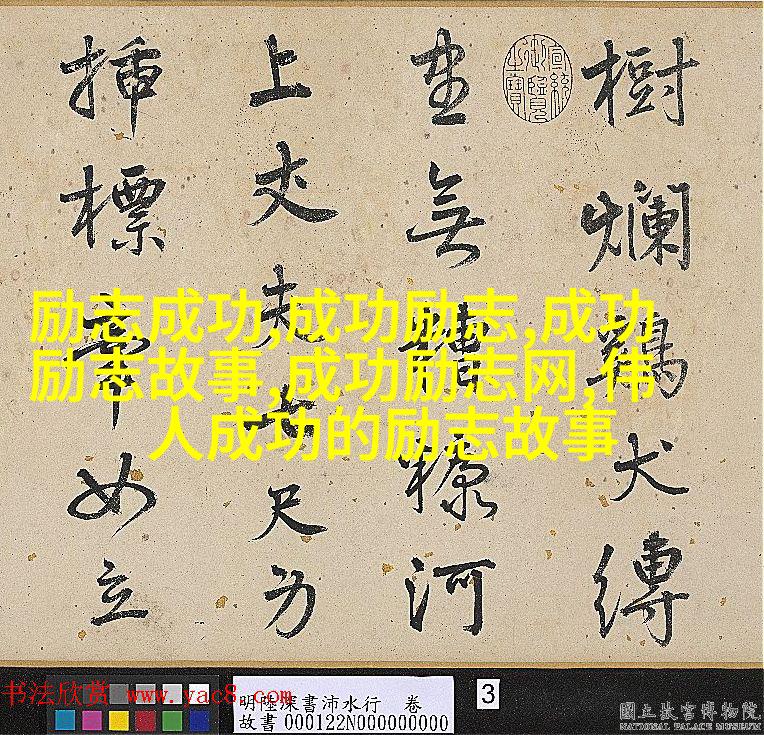 樹爛犬縛
坐無糟糠河
上丈夫尺
插標女立
宣統御覽之寶
励志成功,成功励志,成功
励志故事,成功励志网,伟
人成功的励志故事
书法欣赏 www.yac8.com
明陸深書沛水行　卷
故書000122N000000000
3
國立故宮博物院
NATIONAL PALACE MUSEUM